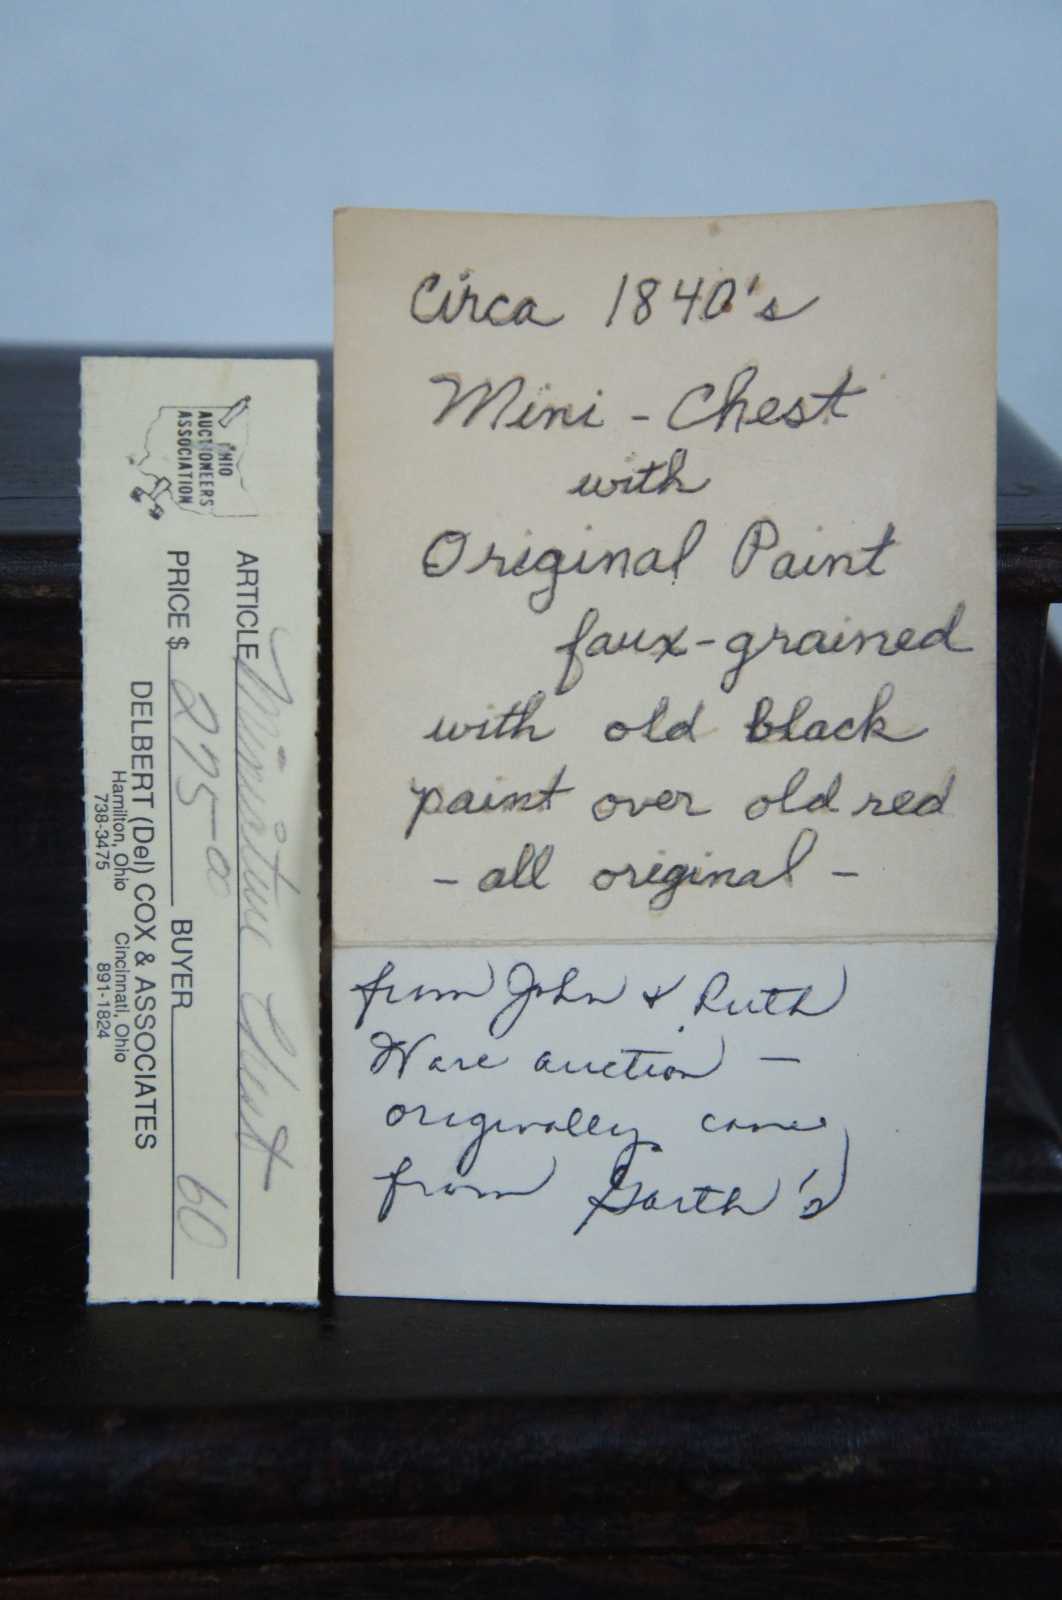 OHIO
AUCTIONEERS
ASSOCIATION
ARTICLE Miniature Chest
PRICE $ 275-00 BUYER 60
DELBERT (Del) COX & ASSOCIATES
Hamilton, Ohio Cincinnati, Ohio
738-3475 891-1824
Circa 1840's
Mini - Chest
with
Original Paint
faux-grained
with old black
paint over old red
- all original -
from John & Ruth
Ware auction -
originally came
from Garth's